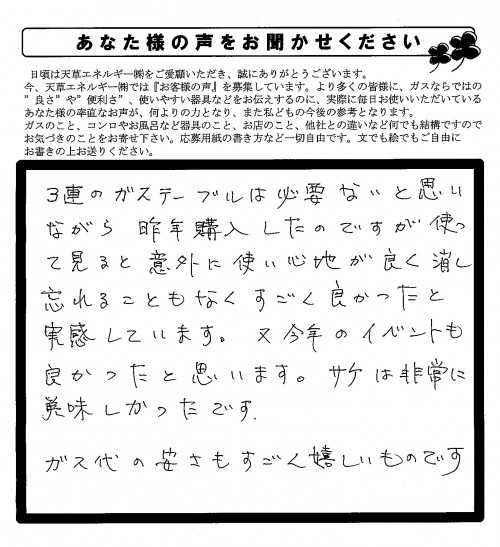 あなた様の声をお聞かせください
日頃は天草エネルギー㈱をご愛顧いただき、誠にありがとうございます。
今、天草エネルギー㈱では『お客様の声』を募集しています。より多くの皆様に、ガスならではの
”良さ”や”便利さ”、使いやすい器具などをお伝えするのに、実際に毎日お使いいただいている
あなた様の率直なお声が、何よりの力となり、また私どもの今後の参考となります。
ガスのこと、コンロやお風呂など器具のこと、お店のこと、他社との違いなど何でも結構ですので
お気づきのことをお寄せ下さい。応募用紙の書き方など一切自由です。文でも絵でもご自由に
お書きの上お送りください。
3連のガステーブルは必要ないと思い
ながら 昨年購入したのですが使っ
て見ると意外に使い心地が良く消し
忘れることもなくすごく良かったと
実感しています。又今年のイベントも
良かったと思います。サケは非常に
美味しかったです.
ガス代の安さもすごく嬉しいものです